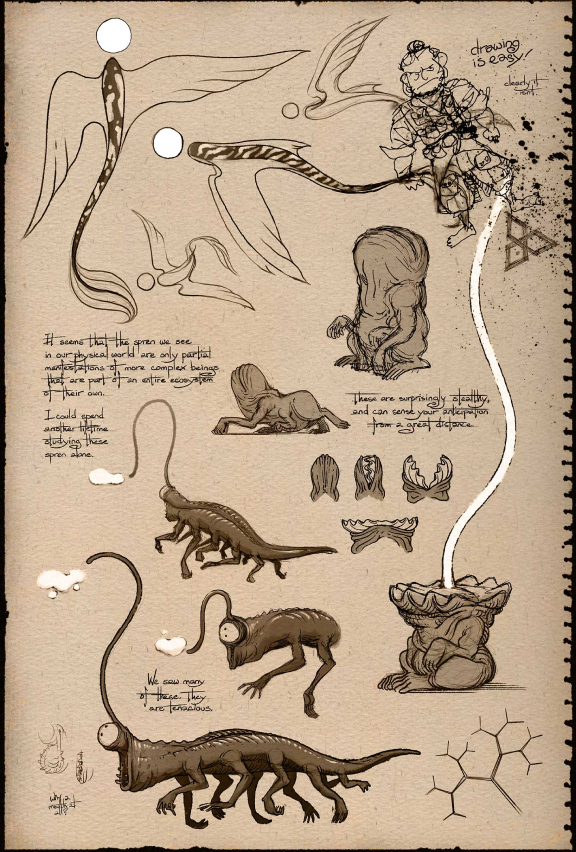 drawing
is easy!
clearly it
isn't.
It seems that the spren we see
in our physical world are only partial
manifestations of more complex beings
that are part of an entire ecosystem
of their own.
I could spend
another lifetime
studying these
spren alone.
These are surprisingly stealthy,
and can sense your anticipation
from a great distance.
We saw many
of these. They
are tenacious.